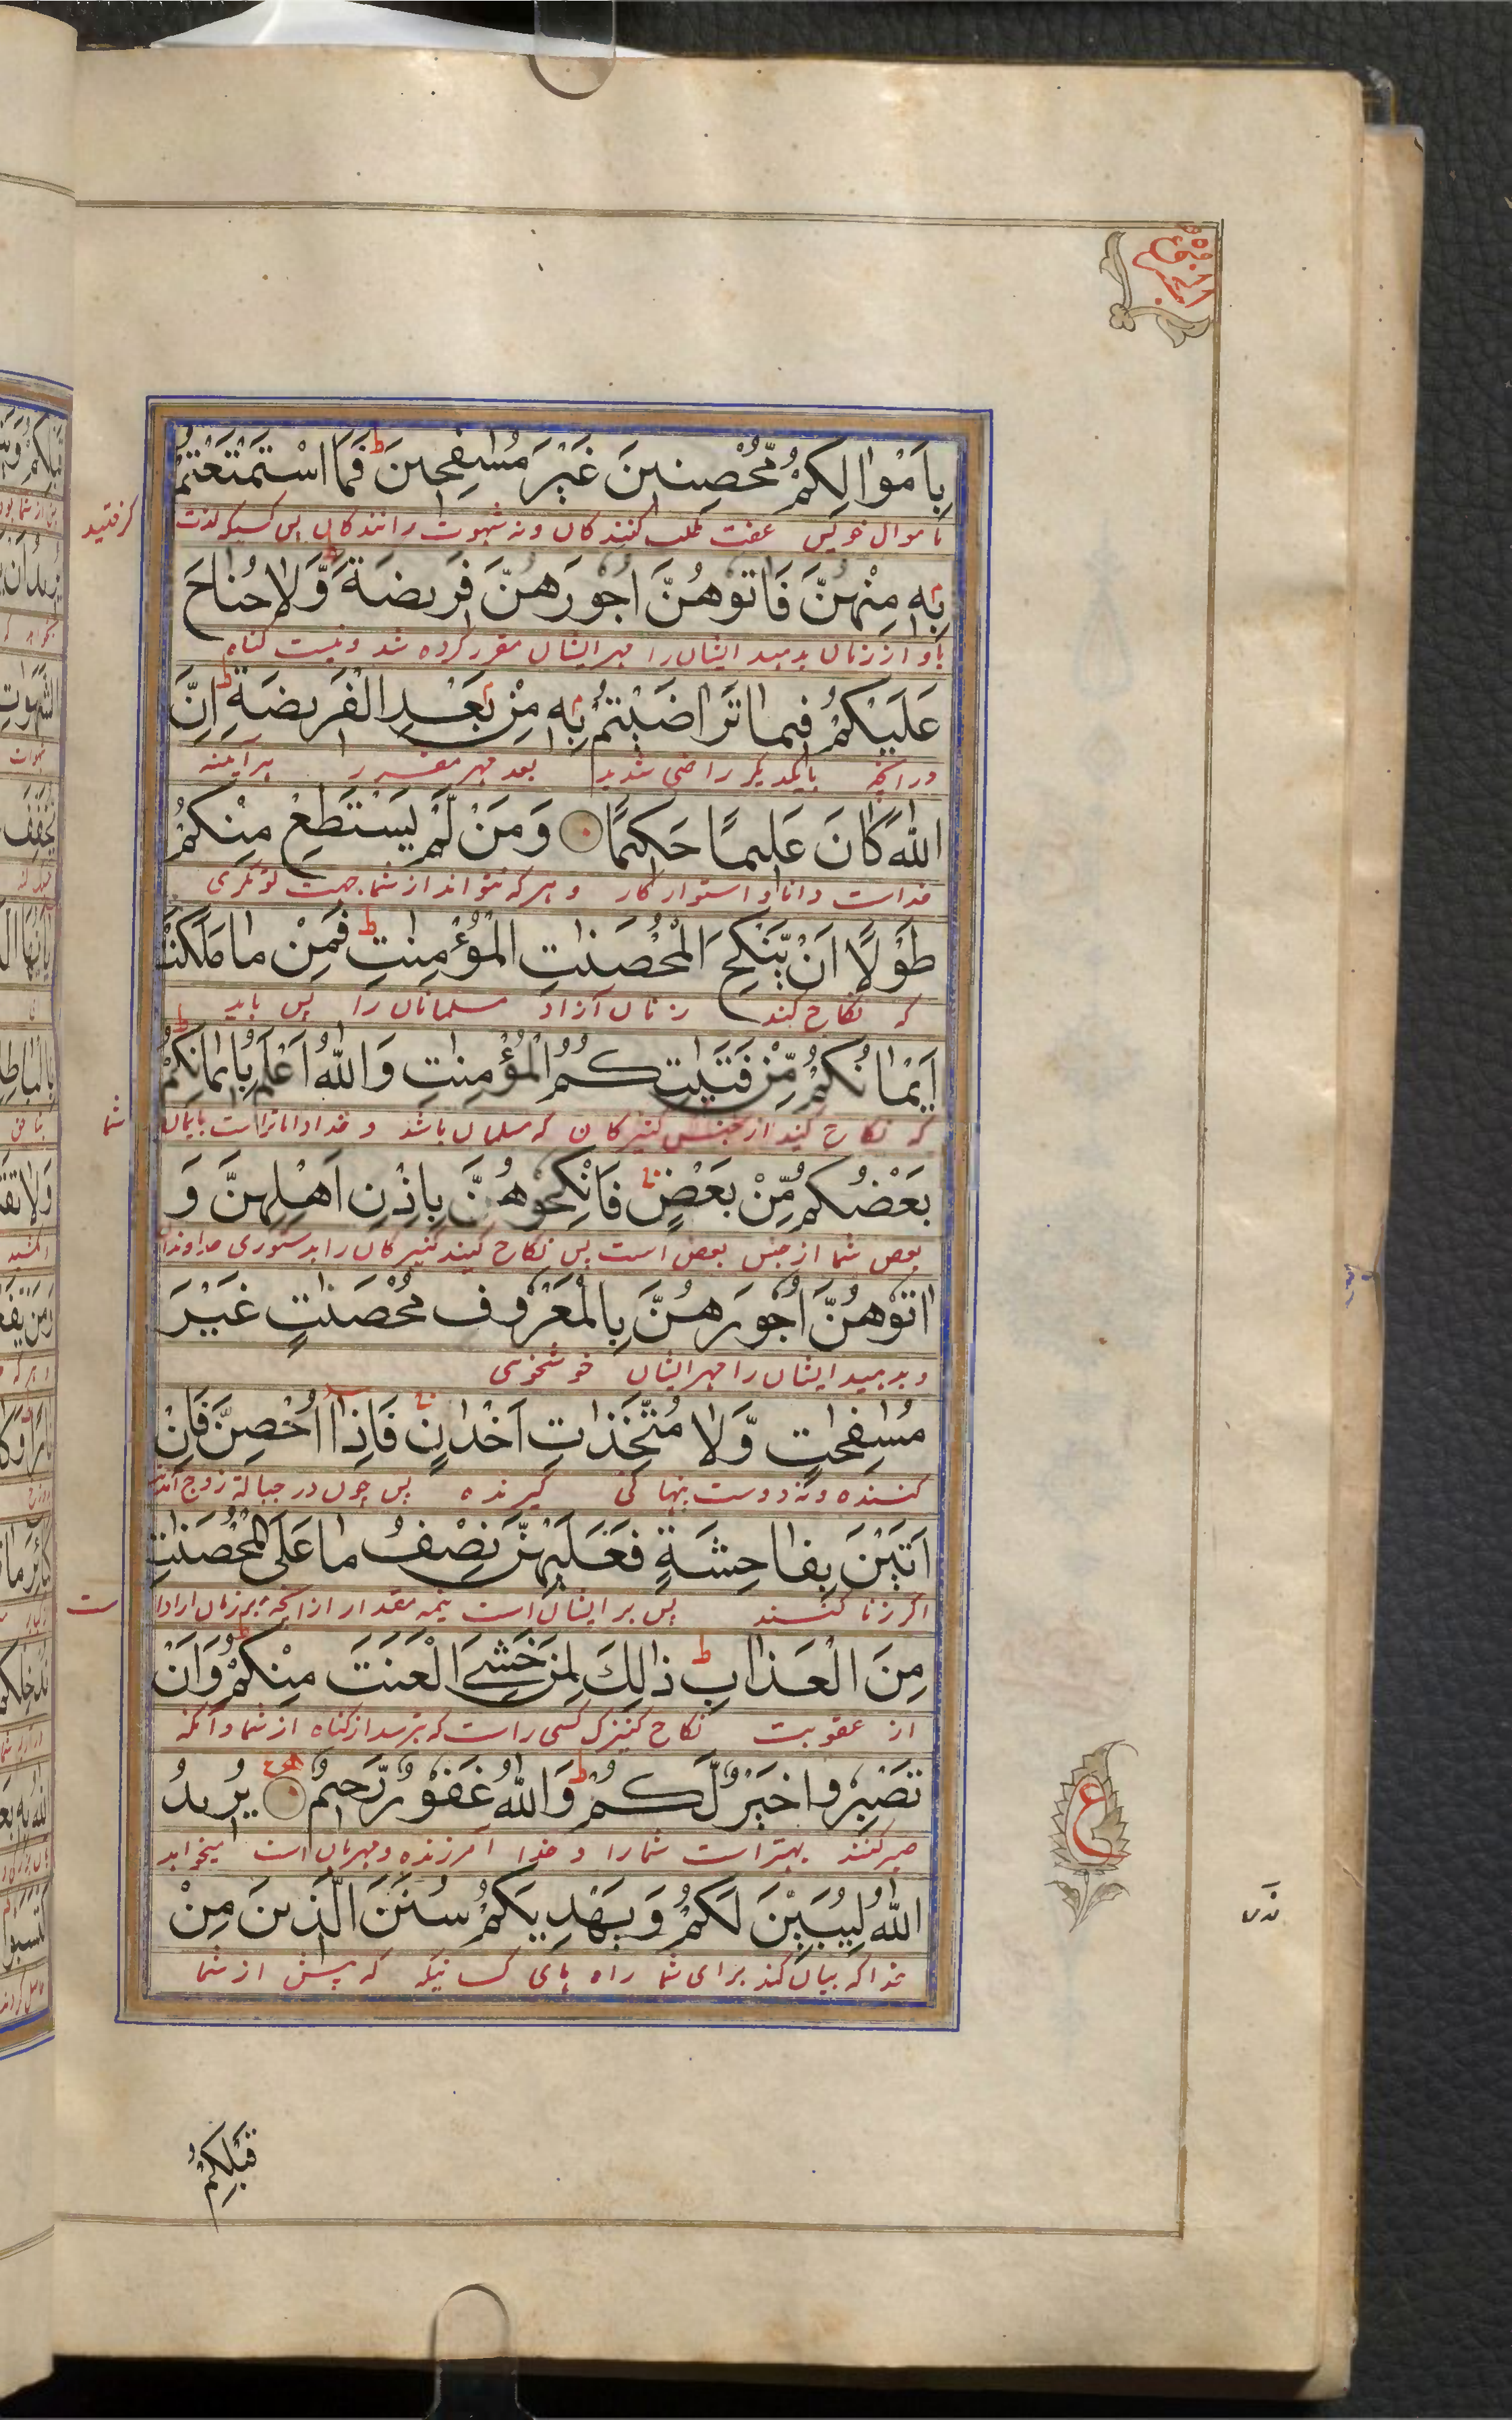 الجزو ٥
بِاَمْوَالِكُمْ مُّحْصِنِيْنَ غَيْرَ مُسٰفِحِيْنَ ط فَمَا اسْتَمْتَعْتُمْ
باموال خویش عفت طلب کنندکان ونه شهوت رانندکان پس کسیکه لذت
کرفتید
بِهٖ مِنْهُنَّ فَاٰتُوْهُنَّ اُجُوْرَهُنَّ فَرِيْضَةً ط وَّلَا جُنَاحَ
باو از زنان بدهید ایشان را مهر ایشان مقرر کرده شد ونیست کناه
عَلَيْكُمْ فِيْمَا تَرَاضَيْتُمْ بِهٖ مِنْ بَعْدِ الْفَرِيْضَةِ ط اِنَّ
درانچه بایکدیکر راضی شدید بعد مهر مقرر هرآیینه
اللّٰهَ كَانَ عَلِيْمًا حَكِيْمًا وَمَنْ لَّمْ يَسْتَطِعْ مِنْكُمْ
خداست دانا و استوار کار و هر که نتواند از شما جهت تونکری
طَوْلًا اَنْ يَّنْكِحَ الْمُحْصَنٰتِ الْمُؤْمِنٰتِ ط فَمِنْ مَا مَلَكَتْ
که نکاح کند زنان آزاد مسلمانان را پس باید
اَيْمَانُكُمْ مِّنْ فَتَيٰتِكُمُ الْمُؤْمِنٰتِ وَاللّٰهُ اَعْلَمُ بِاِيْمَانِكُمْ ط
که نکاح کیند از جنس کنیزکان که مسلمان باشد و خدا داناتراست بایمان
شما
بَعْضُكُمْ مِّنْ بَعْضٍ فَانْكِحُوْهُنَّ بِاِذْنِ اَهْلِهِنَّ وَ
بعض شما از جنس بعض است پس نکاح کیند کنیزکان را بدستوری خداوندان
اٰتُوْهُنَّ اُجُوْرَهُنَّ بِالْمَعْرُوْفِ مُحْصَنٰتٍ غَيْرَ
وبدهید ایشان را مهر ایشان خوشخوی
مُسٰفِحٰتٍ وَّلَا مُتَّخِذَاتِ اَخْدَانٍ فَاِذَا اُحْصِنَّ فَاِنْ
کننده ونه دوست پنهانی کیرنده پس چون در حبالۀ زوج آمدند
اَتَيْنَ بِفَاحِشَةٍ فَعَلَيْهِنَّ نِصْفُ مَا عَلَى الْمُحْصَنٰتِ
اکر زنا کنند پس بر ایشان است نیمه مقدار ازانچه بر زنان ازادا
ست
مِنَ الْعَذَابِ ط ذٰلِكَ لِمَنْ خَشِيَ الْعَنَتَ مِنْكُمْ ط وَاَنْ
از عقوبت نکاح کنیزک کسی راست که بترسد از کناه از شما و آنکه
تَصْبِرُوْا خَيْرٌ لَّكُمْ ط وَاللّٰهُ غَفُوْرٌ رَّحِيْمٌ يُرِيْدُ
صبر کنند بهتر است شما را و خدا آمرزنده ومهربان است میخواهد
ع
اللّٰهُ لِيُبَيِّنَ لَكُمْ وَيَهْدِيَكُمْ سُنَنَ الَّذِيْنَ مِنْ
خدا که بیان کند برای شما راه های کسانیکه که پیش از شما
قَبْلِكُمْ